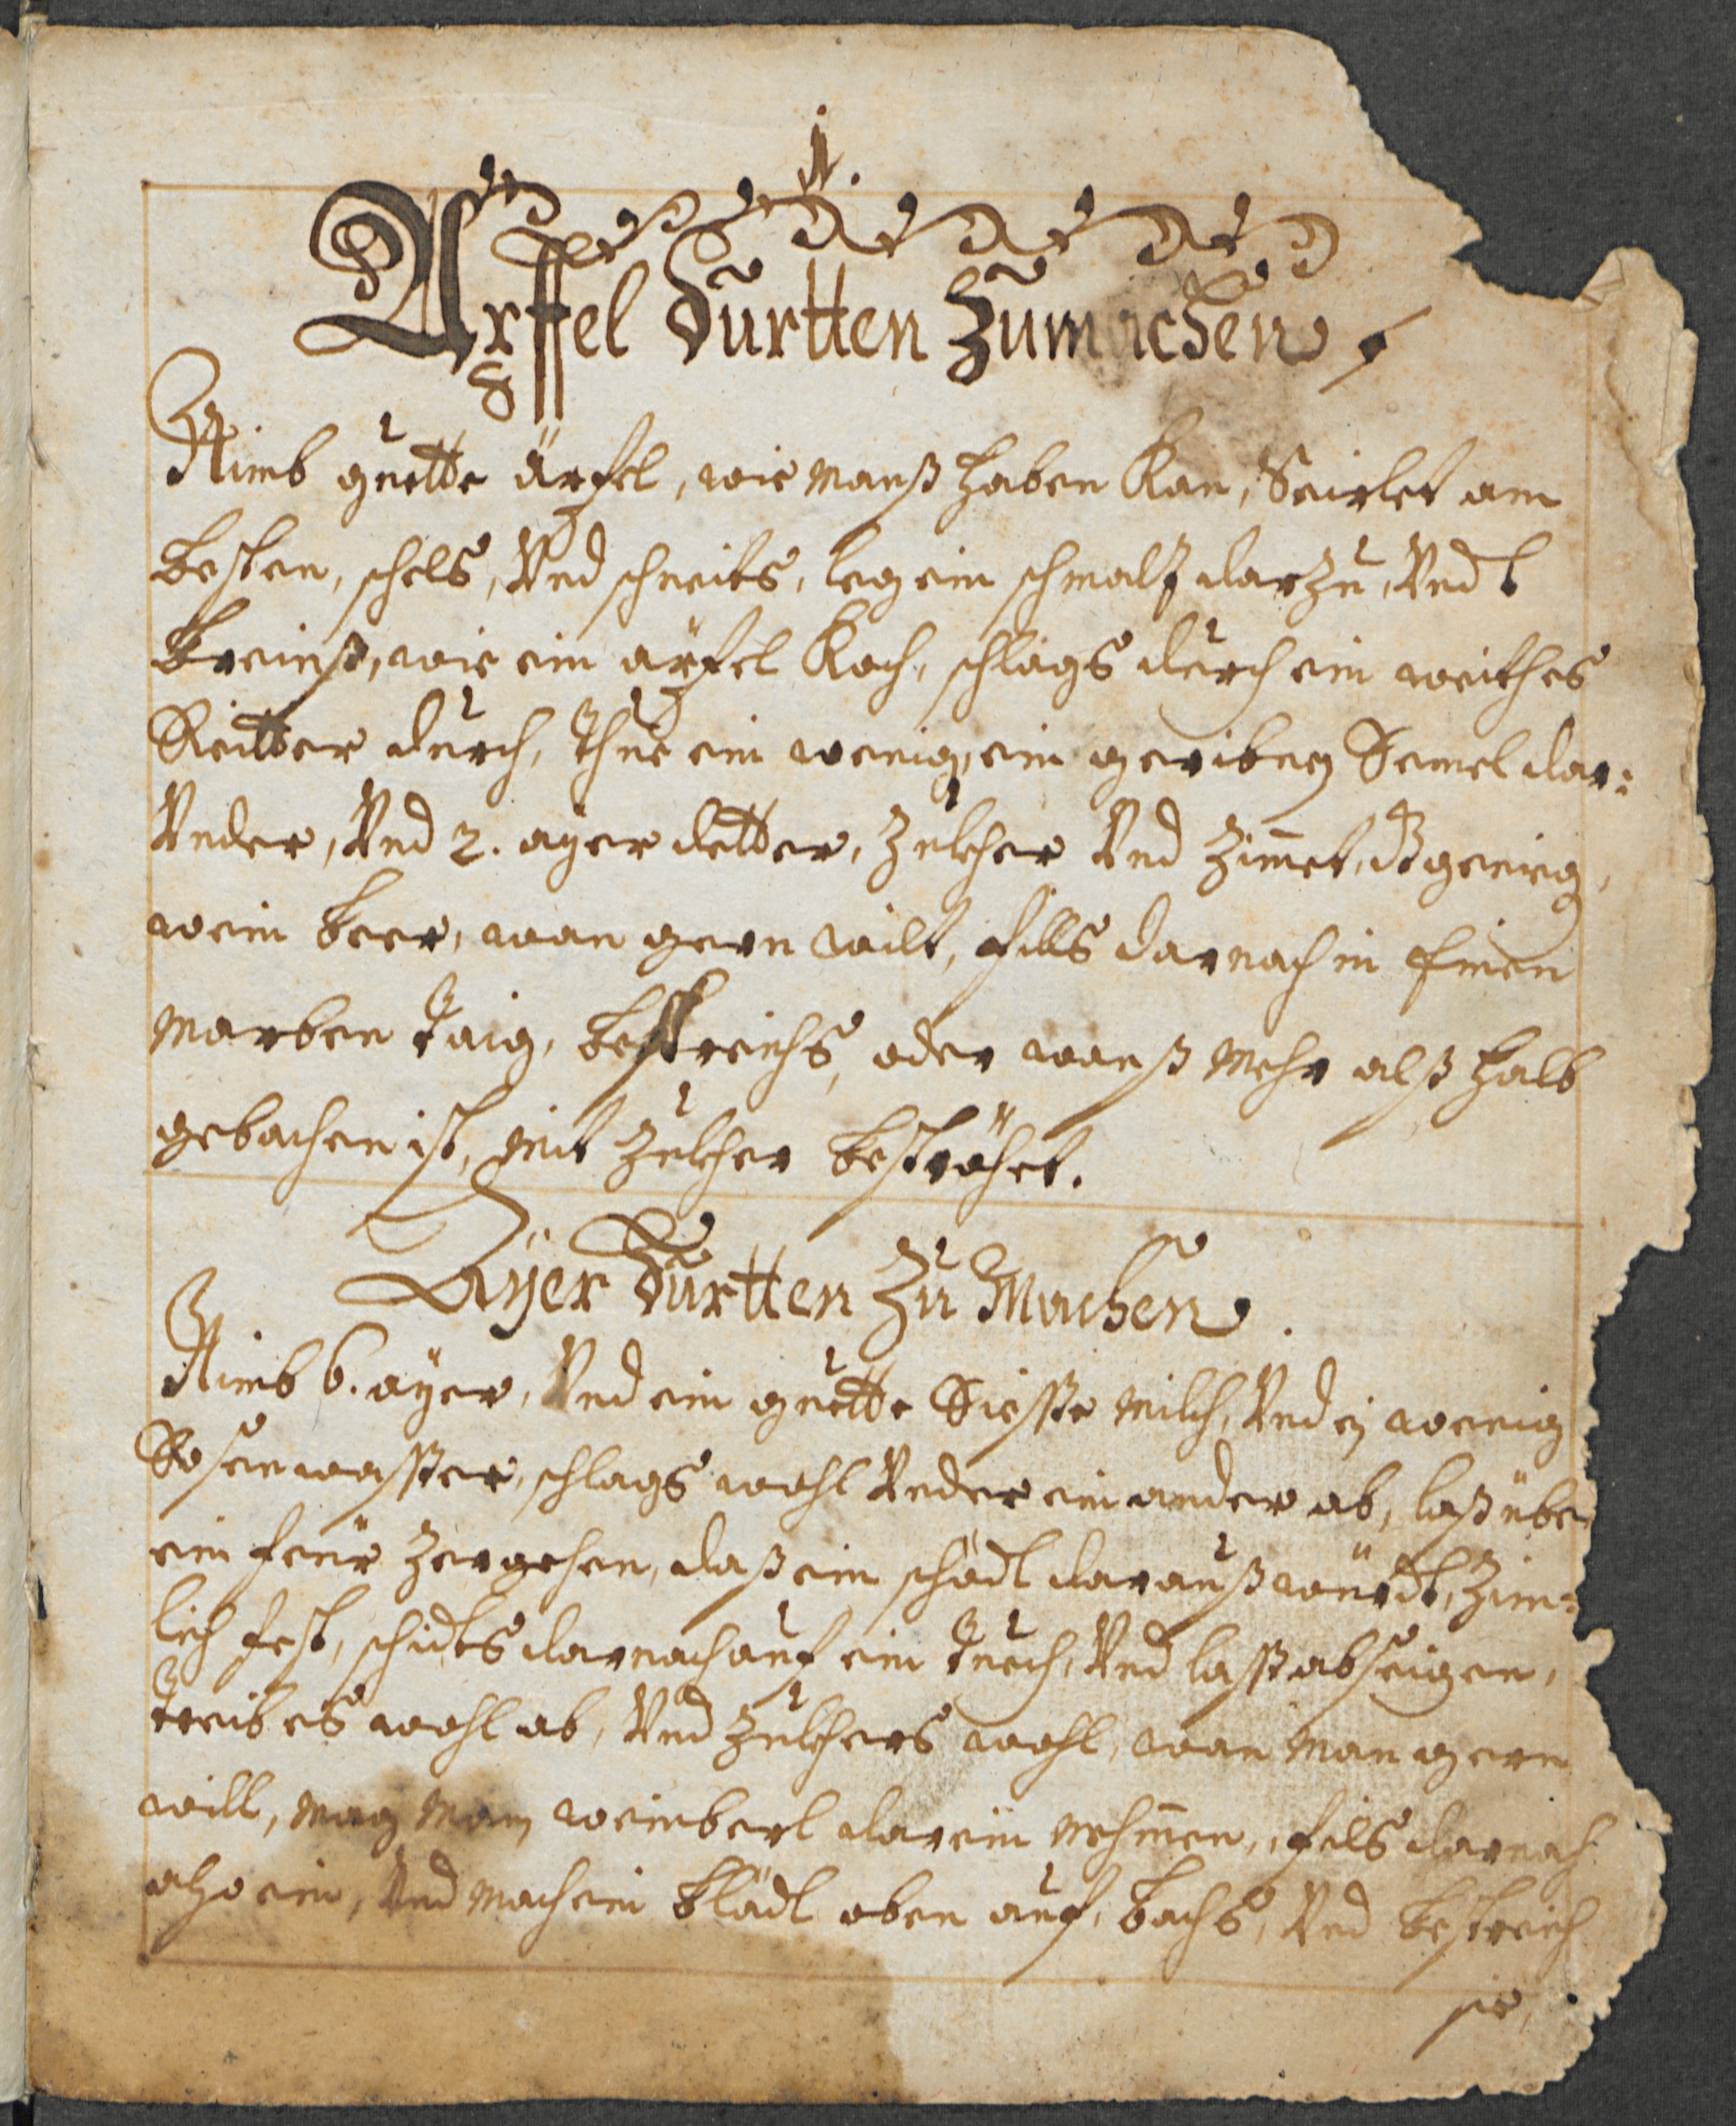 1.
Äpffel Durtten Zumachen
Nimb guette äpfel, wie manß haben kan, Seirlet am
besten, schels, Vnd schneits, leg ein schmalz darzu, Vndt
breinß, wie ein äpfel Koch, schlags durch ein weithes
Reitter durch, thue ein wenig, ein geriben Semel dar:
Vnder, Vnd 2. ayer detter, Zukher Vnd Zimet, dz genug,
wein beer, wan gern wilt, fills darnach in einen
marben taig, bestreichs, oder wanß mehr alß halb
gebachen ist, mit Zukher beströhet.
Äyer Durtten Zu Machen.
Nimb 6. ayer, Vnd ein guette Siesse milch, Vnd ein wenig
Rosenwasser, schlags wohl Vnder ein ander ab, laß übe
ein feür Zergehen, daß ein schödl darauß würdt, Zim:
lich fest, schidts darnach auf ein tuech, Vnd lasß abseigen,
treib es wohl ab, Vnd Zukhers wohl, wan man gern
will, mag man weinberl darein nehmen, fils darnach
also ein, Vnd mach ein blädl oben auf, bachs, Vnd bestreich